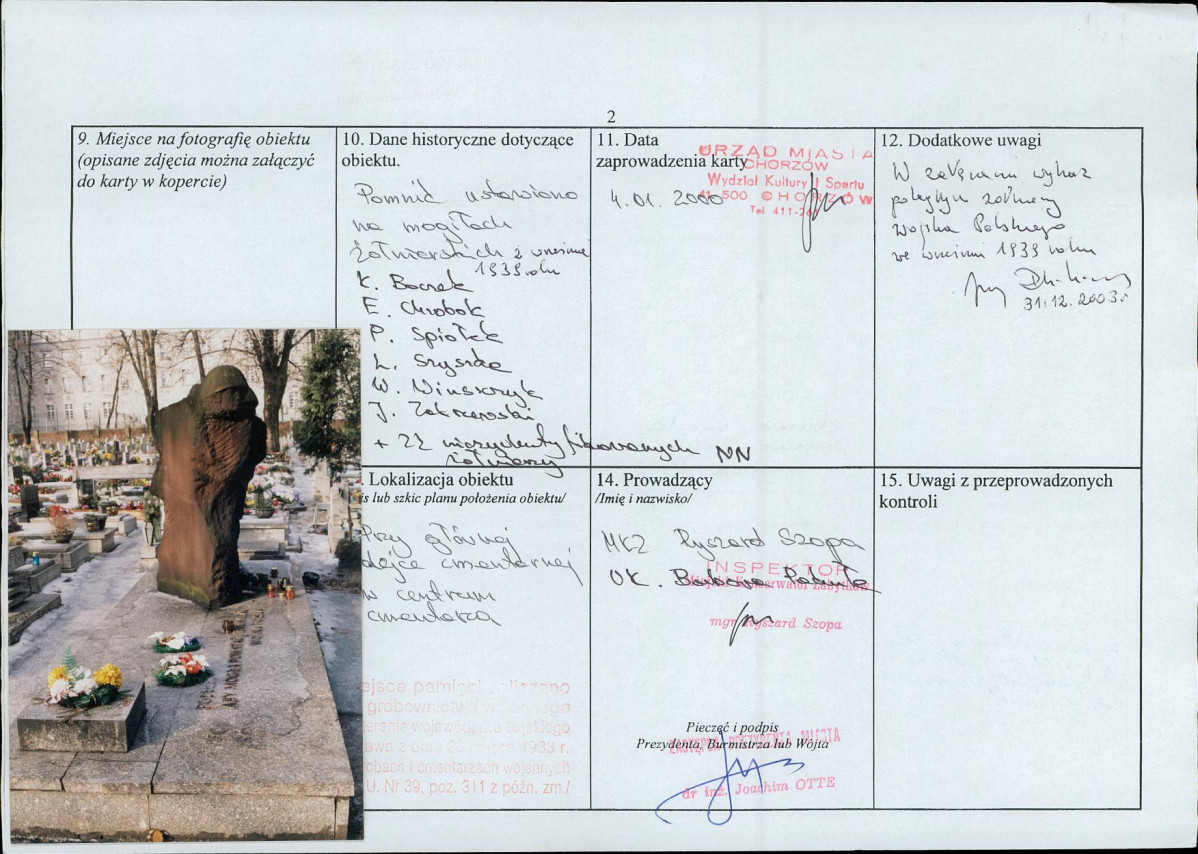 2
9. Miejsce na fotografię obiektu
(opisane zdjęcia można załączyć
do karty w kopercie)
10. Dane historyczne dotyczące
obiektu.
Pomnik ustawiono
na mogiłach
żołnierskich z wrześnie
1939 roku
K. Bocrek
E. Chrobok
P. Spiołek
L. Szyszka
W. Winszczyk
J. Zakrzewski
+ 22 niezydentyfikowanych NN
żołnierzy
11. Data
zaprowadzenia karty
4.01. 2000
URZĄD MIASTA
CHORZÓW
Wydział Kultury i Sportu
41-500 CHORZÓW
Tel 411-26
12. Dodatkowe uwagi
W załączeniu wykaz
poległych żołnierzy
Wojska Polskiego
we wrześniu 1939 roku
31.12.2003r
Lokalizacja obiektu
is lub szkic planu położenia obiektu/
Przy głównej
alejce cmentarnej
w centrum
cmentarza
ejsce pamięci
grobownictwa
erenie województwa
awa z dnia 1933 r.
obach i cmentarzach wojennych
U. Nr 39, poz. 311 z późn. zm./
14. Prowadzący
/Imię i nazwisko/
MKZ Ryszard Szopa
UK.
INSPEKTOR
Miejski Konserwator Zabytków
mgr Ryszard Szopa
Pieczęć i podpis
Prezydenta, Burmistrza lub Wójta
ZASTĘPCA PREZYDENTA MIASTA
dr inż. Joachim OTTE
15. Uwagi z przeprowadzonych
kontroli